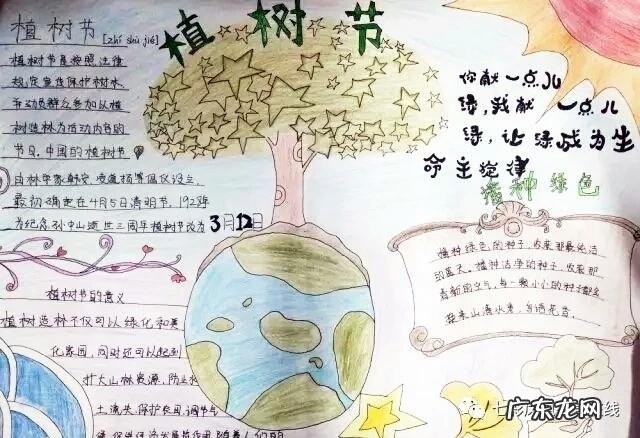 植树节 [zhí shù jié]
植树节
植树节是按照法律
规定宣传保护树木,
并动员群众参加以植
树造林为活动内容的
节日。中国的植树节
由林学家韩安、凌道扬等倡仪设立,
最初确定在4月5日清明节, 1928年
为纪念孙中山逝世三周年植树节改为3月12日
你献一点儿
绿,我献一点儿
绿,让绿成为生
命主旋律
播种绿色
植种绿色的种子,收获那最纯洁
的蓝天。植种洁净的种子,收获那
清新的空气,每一颗小小的种子都会
带来山清水秀,鸟语花香。
植树节的意义
植树造林不仅可以绿化和美
化家园,同时还可以起到
扩大山林资源,防止水
土流失,保护农田,调节气
广东龙网
线